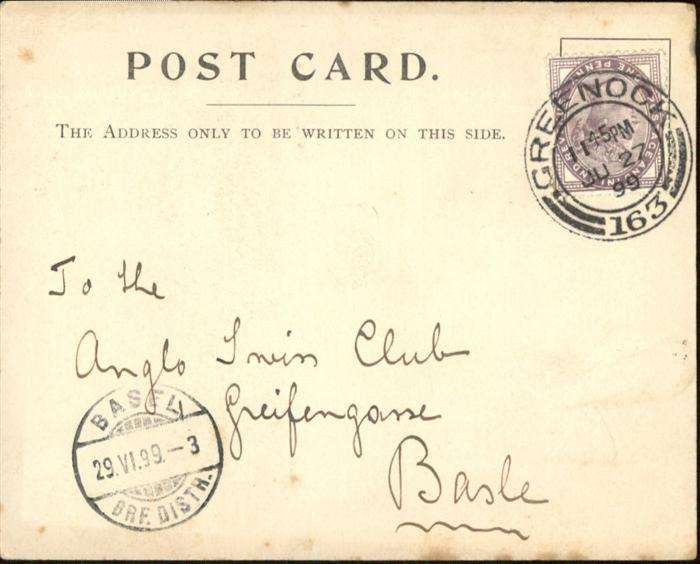 POST CARD.
THE ADDRESS ONLY TO BE WRITTEN ON THIS SIDE.
GREENOCK
11 45PM
JU 27
99
163
To the
Anglo Swiss Club
Greifengasse
Basle
BASEL
29.VI.99.-3
BRF. DISTR.